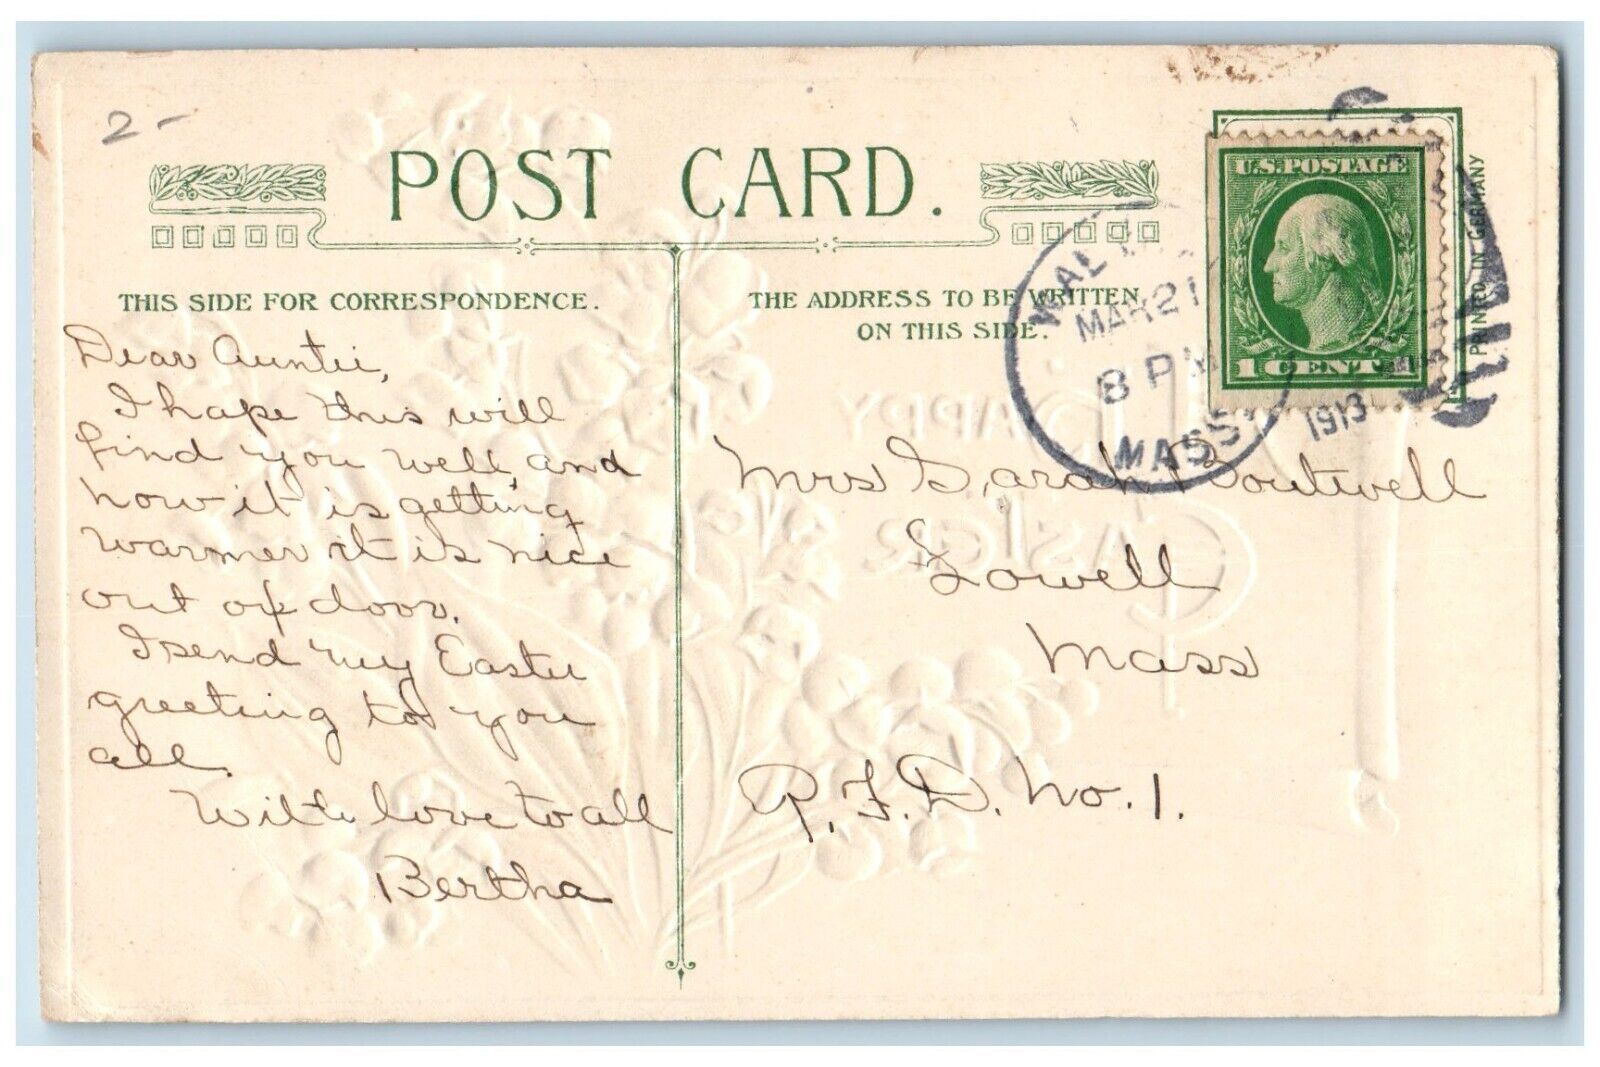 2-
POST CARD.
THIS SIDE FOR CORRESPONDENCE.
Dear Auntie,
I hope this will
find you well, and
now it is getting
warmer it is nice
out of door.
I send my Easter
greeting to you
all.
With love to all
Bertha
THE ADDRESS TO BE WRITTEN
ON THIS SIDE.
MAR 21
8 PM
1913
MASS.
U.S. POSTAGE
1 CENT 1
PRINTED IN GERMANY
HAPPY
EASTER
Mrs Sarah Boutwell
Lowell
Mass
R.F.D. No. 1.